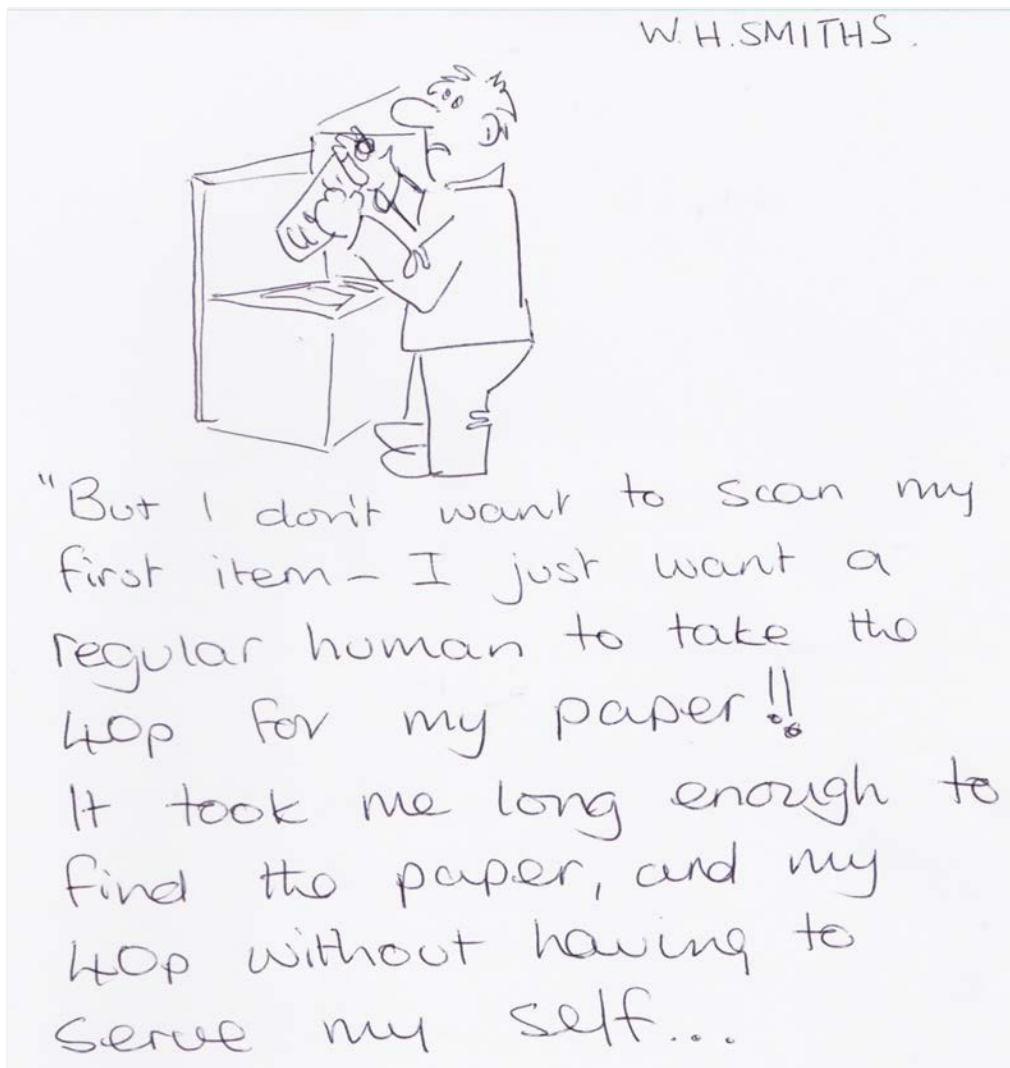 W.H.SMITHS.
"But I don't want to scan my
first item - I just want a
regular human to take the
40p for my paper!!
It took me long enough to
find the paper, and my
40p without having to
serve my self...